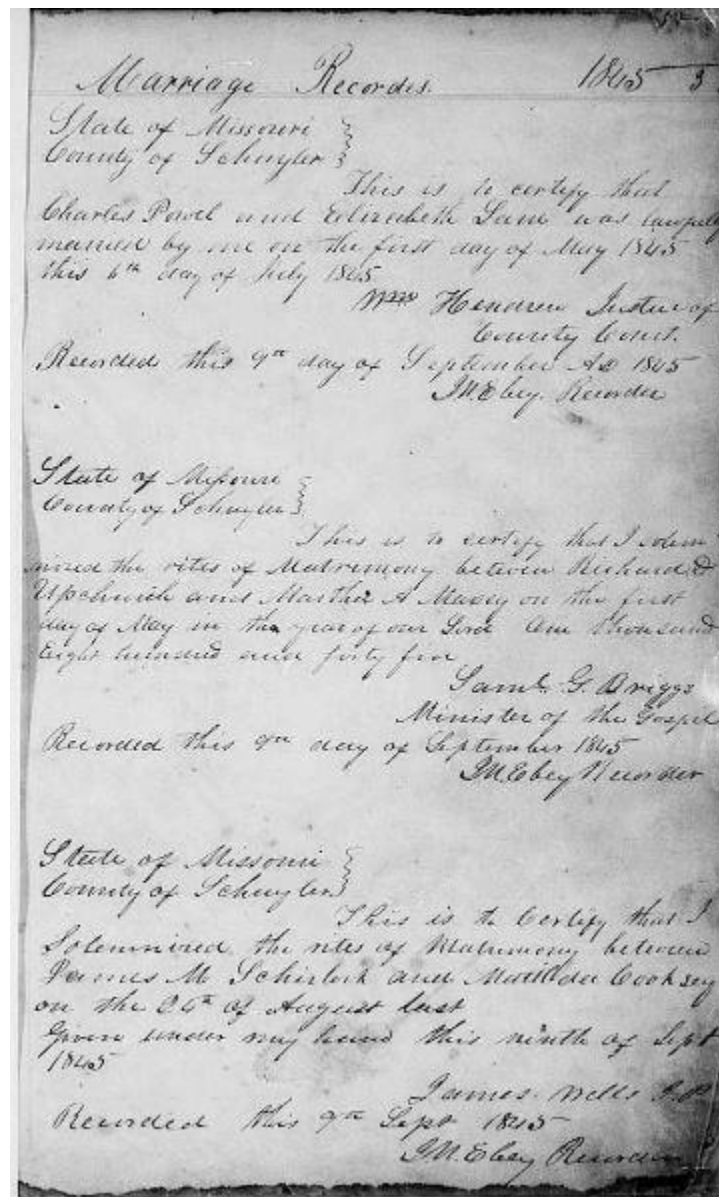 Marriage Recordes. 1845 3
State of Missouri
County of Schuyler
This is to certify that
Charles Powel and Elizabeth Lane was lawfully
married by me on the first day of May 1845
this 6th day of July 1845
Wm Hendren Justice of
County Court.
Recorded this 9th day of September AD 1845
J.M. Ebey. Recorder
State of Missouri
County of Schuyler
This is to certify that I solem
nized the rites of Matrimony between Richard
Upchurch and Martha A Maxey on the first
day of May in the year of our Lord One thousand
Eight hundred and forty five
Saml. G. Briggs
Minister of the Gospel
Recorded this 9th day of September 1845
J.M. Ebey Recorder
State of Missouri
County of Schuyler
This is to Certify that I
Solemnized the rites of Matrimony between
James M and Cooksey
on the of August last
Given under my hand this ninth of Sept
1845
James Wells J.P.
Recorded this 9th Sept 1845
J.M. Ebey Recorder